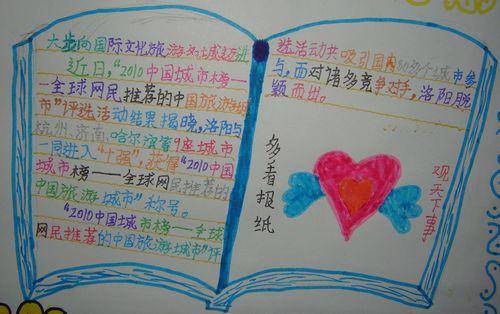 大步向国际文化旅游名城迈进
近日,“2010中国城市榜—
—全球网民推荐的中国旅游城
市”评选活动结果揭晓,洛阳与
杭州、济南、哈尔滨等9座城市
一同进入“十强”,获得“2010中国
城市榜——全球网民推荐的
中国旅游城市”称号。
“2010中国城市榜——全球
网民推荐的中国旅游城市”评
选活动共吸引国内80多个城市参
与,面对诸多竞争对手,洛阳脱
颖而出。
多看报纸
观天下事